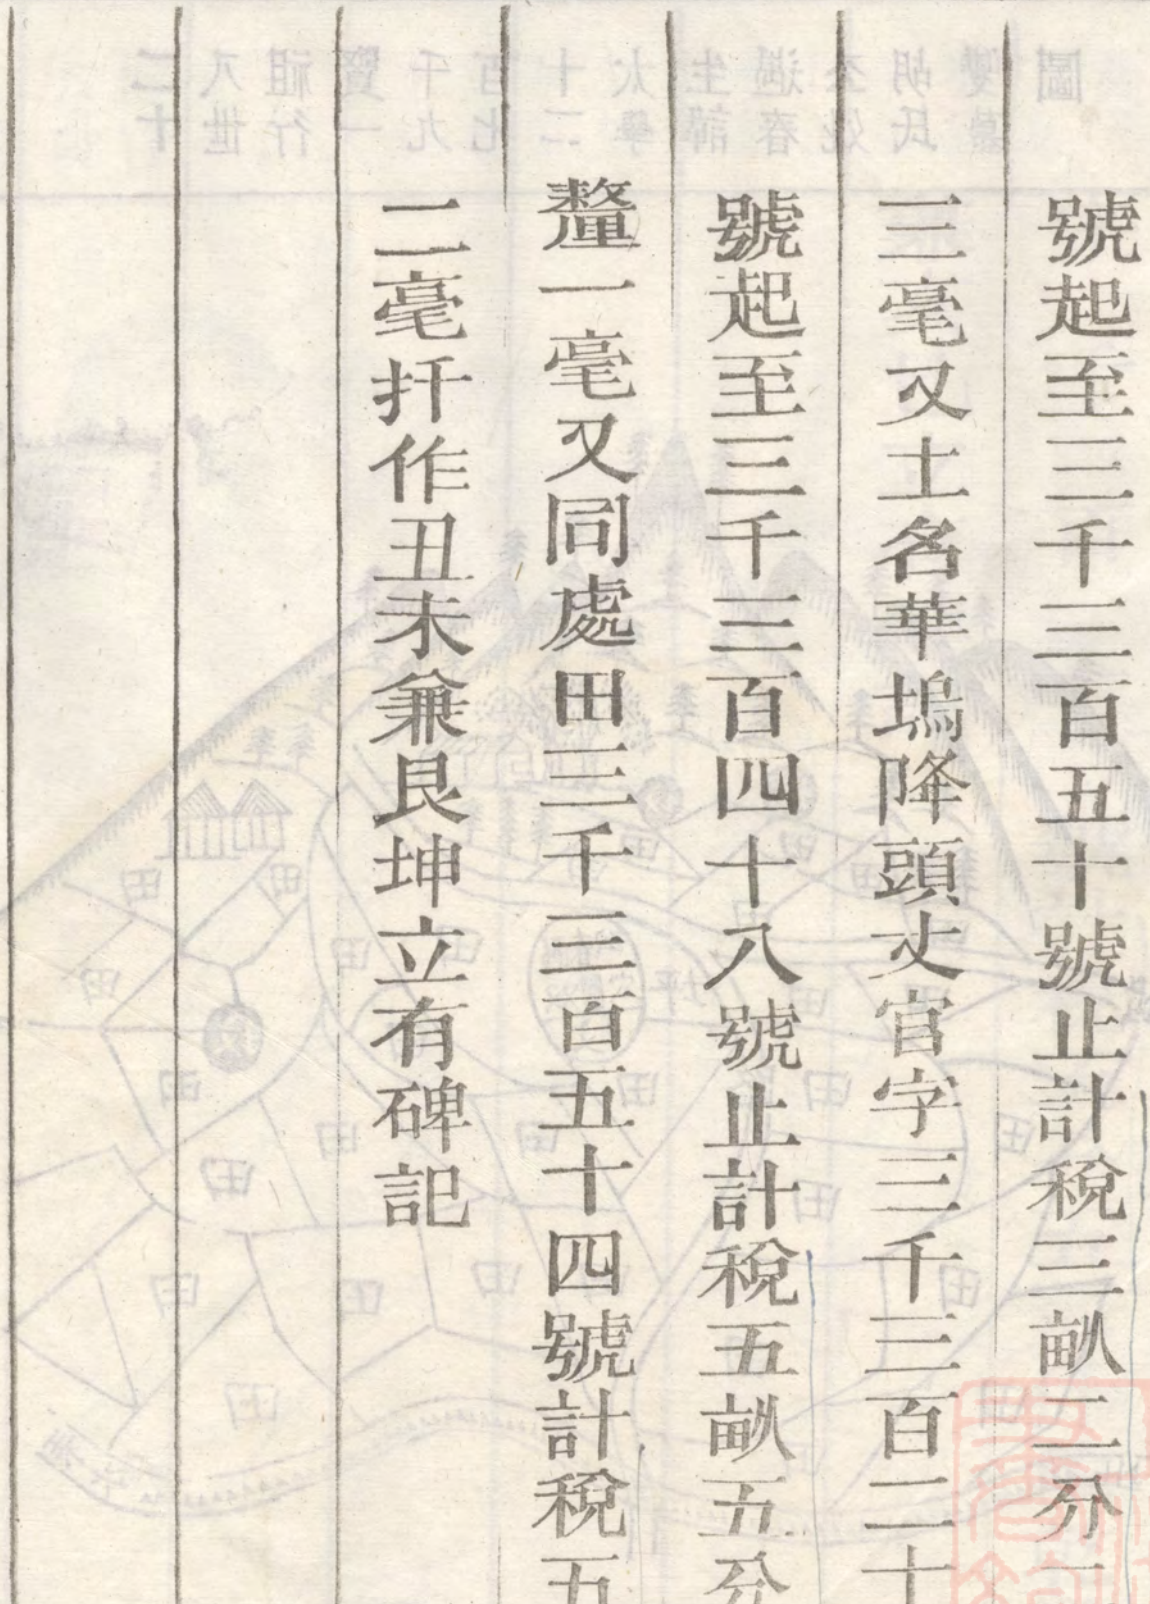 號起至三千三百五十號止計稅三畝二分
三毫又土名華塢降頭丈官字三千三百二十
號起至三千三百四十八號止計稅五畝五分
釐一毫又同處田三千三百五十四號計稅五
二毫扦作丑未兼艮坤立有碑記